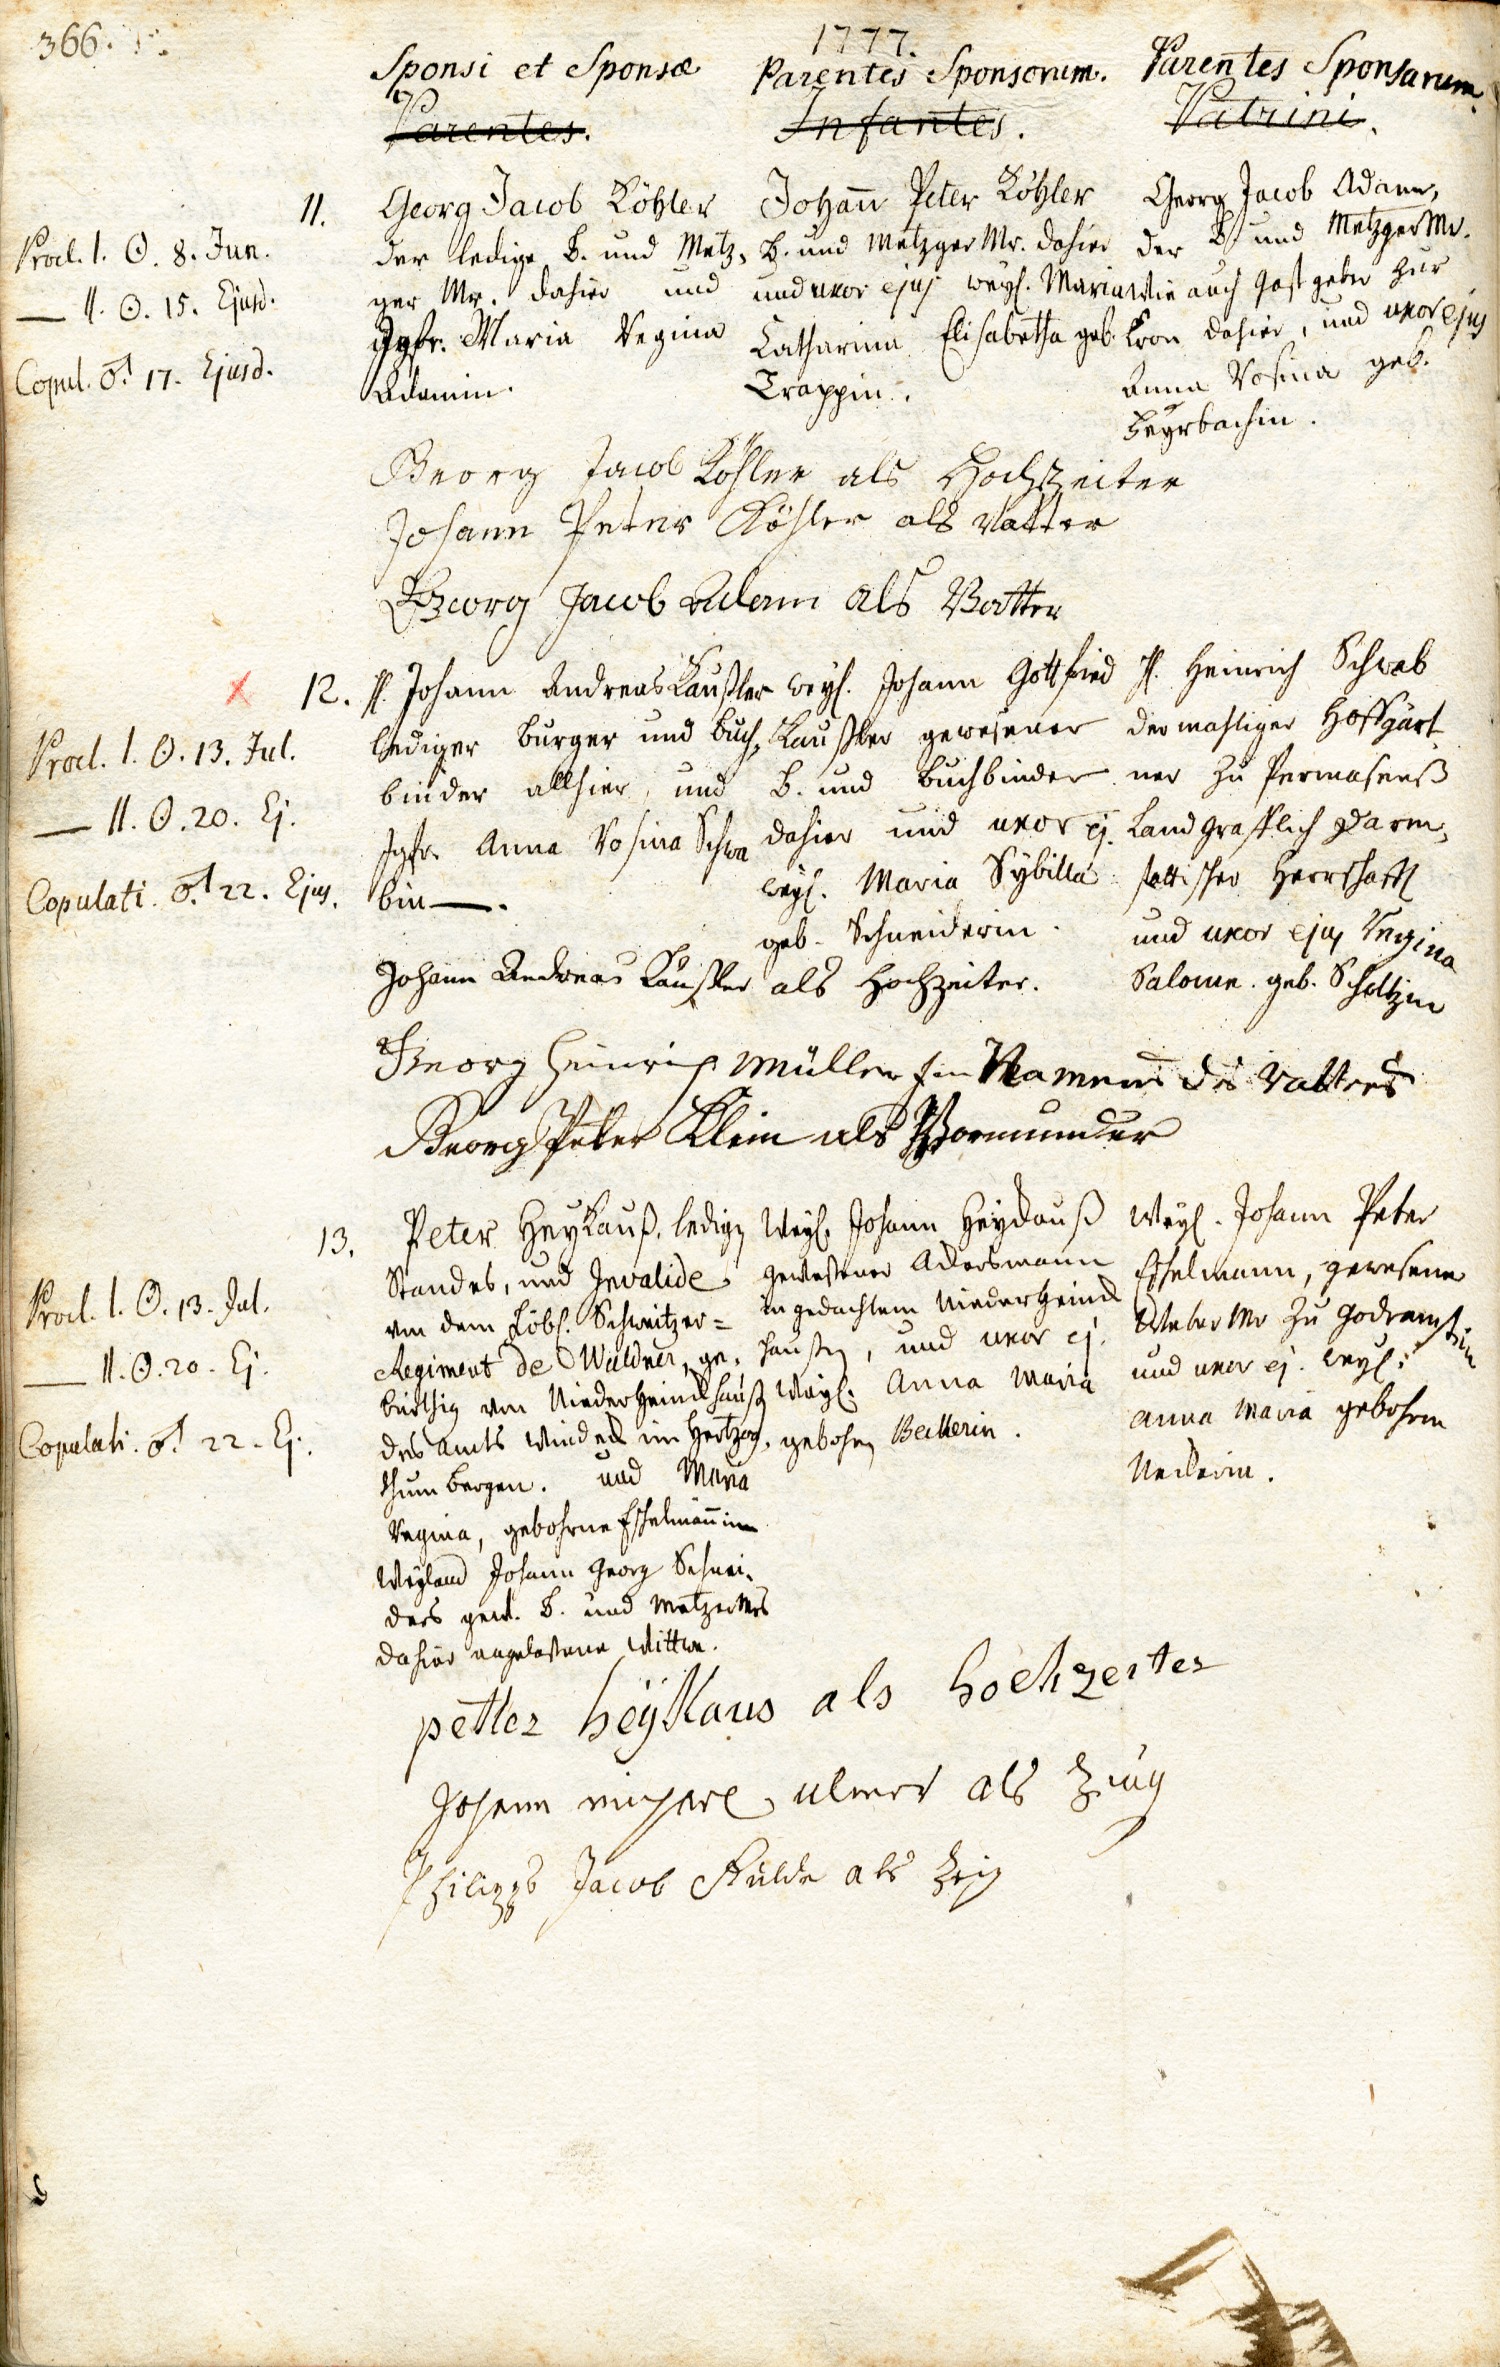 366.
1777.
Sponsi et Sponsæ
Parentes.
Parentes Sponsorum.
Infantes.
Parentes Sponsarum.
Patrini.
Procl. I. ☉. 8. Jun.
— II. ☉. 15. Ejusd.
Copul. ♂. 17. Ejusd.
11.
Georg Jacob Köhler
der ledige B. und Metz-
ger Mr. dahier und
Jgfr. Maria Regina
Adamin.
Johann Peter Köhler
B. und Metzger Mr. dahier
und uxor ejus weyl. Maria
Catharina Elisabetha geb.
Trappin.
Georg Jacob Adam,
der B. und Metzger Mr.
wie auch Gastgeber zur
Kron dahier, und uxor ejus
Anna Rosina geb.
Feyrbachin.
Georg Jacob Köhler als Hochzeiter
Johann Peter Köhler als Vatter
Georg Jacob Adam als Vatter
Procl. I. ☉. 13. Jul.
— II. ☉. 20. Ej.
Copulati. ♂. 22. Ejus.
12.
H. Johann Andreas Kaußler
lediger Burger und Buch-
binder allhier, und
Jgfr. Anna Rosina Schwa
bin —.
weyl. Johann Gottfried
Kaußler gewesener
B. und Buchbinder
dahier und uxor ej.
weyl. Maria Sybilla
geb. Schneiderin.
H. Heinrich Schwab
dermahliger Hoffgärt
ner zu Permasens
Landgräfflich Darm-
stattischer Herrschafft
und uxor ejus Regina
Salome. geb. Scholtzin
Johann Andreas Kaußler als Hochzeiter.
Georg Heinrich Müller im Namen des Vatters
Georg Peter Klein als Vormunder
Procl. I. ☉. 13. Jul.
— II. ☉. 20. Ej.
Copulati. ♂. 22. Ej.
13.
Peter Heykauß, ledigen
Standes, und Invalide
von dem Löbl. Schweitzer=
Regiment de Waldner, ge-
bürthig von
des Amts Windeck im Hertzog-
thum Bergen. und Maria
Regina, gebohrne Eschelmännin
Weyland Johann Georg Schnei-
ders gew. B. und Metzger Mrs
dahier Wittwe.
Weyl. Johann Heykauß
gewesener Ackersmann
in gedachtem
hausen, und uxor ej.
Weyl. Anna Maria
gebohren Beckerin.
Weyl. Johann Peter
Eschelmann, gewesener
Weber Mr zu Godramstein
und uxor ej. weyl.
Anna Maria gebohren
petter heÿkaus als hochzeiter
Johann michael ulmer als Zeug
Philipps Jacob als Zeig